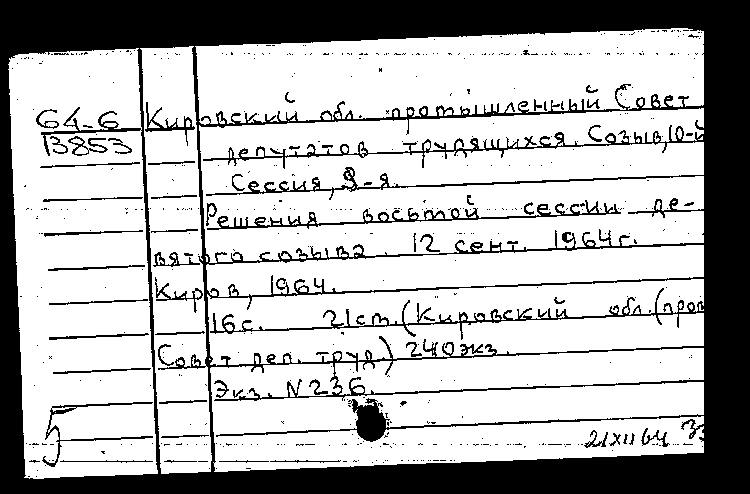 64-6 Кировский обл. промышленный Совет
13853 депутатов трудящихся. Созыв, 10-й
Сессия,
Решения восьмой сессии де-
вятого созыва. 12 сент. 1964г.
Киров, 1964.
16с. 21см. (Кировский обл. (пром
Совет деп. труд.) 240экз.
Экз. N236.
5
21XII64